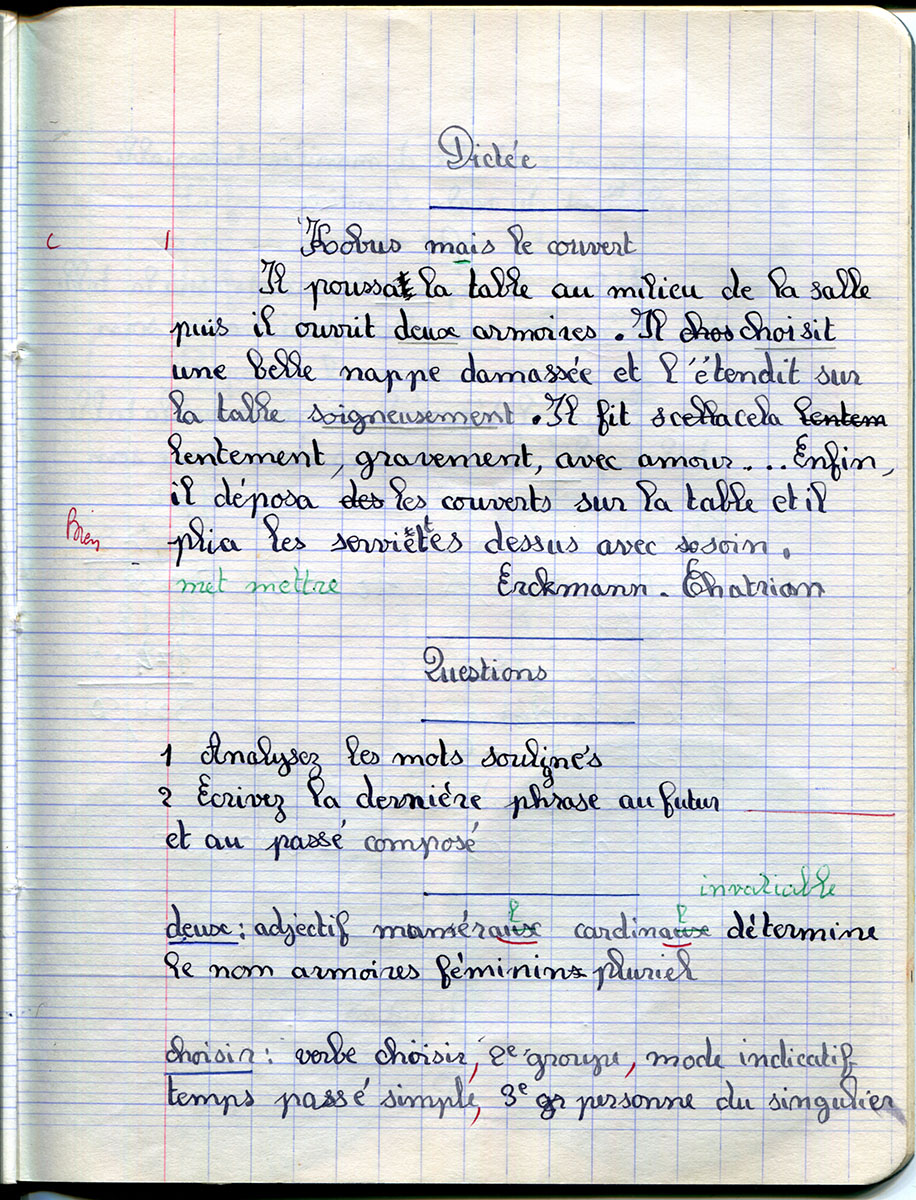 Dictée
c 1 Kobus mais le couvert
Il poussat la table au milieu de la salle
puis il ouvrit deux armoires. Il chos choisit
une belle nappe damassée et l'étendit sur
la table soigneusement. Il fit cela lentem
lentement, gravement, avec amour... Enfin,
il déposa des les couverts sur la table et il
Bien plia les serviettes dessus avec so soin.
met mettre Erckmann. Chatrian
Questions
1 Analysez les mots soulignés
2 Ecrivez la derniére phrase au futur
et au passé composé
invariable
deux: adjectif cardinaux détermine
le nom armoires féminins pluriel
choisir: verbe choisir, 2e groupe, mode indicatif
temps passé simple, 3e gr personne du singulier